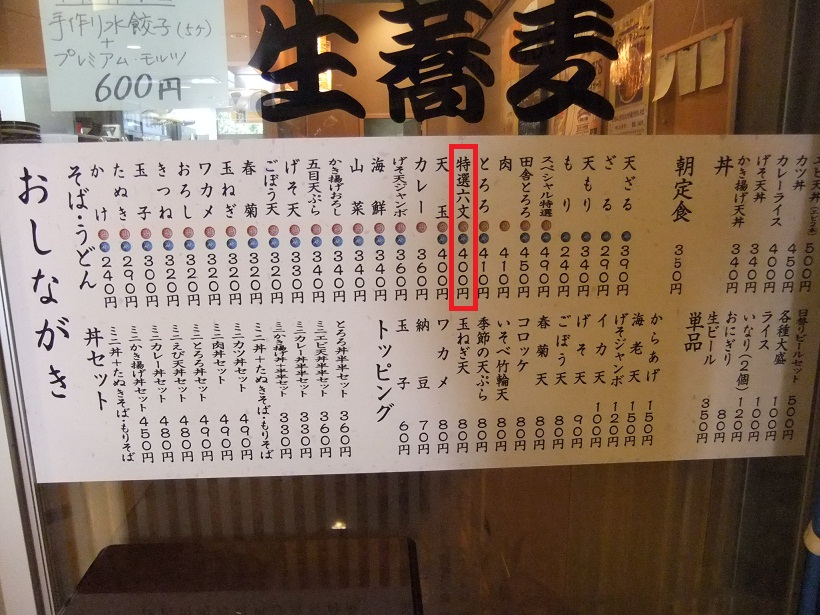 手作り水餃子(5ヶ)
+
プレミアム・モルツ
600円
生蕎麦
おしながき
そば・うどん
かけ 240円
たぬき 290円
玉子 300円
きつね 320円
おろし 320円
ワカメ 320円
玉ねぎ 320円
春菊 320円
ごぼう天 320円
げそ天 330円
五目天ぷら 340円
かき揚げおろし 340円
山菜 340円
海鮮 360円
げそ天ジャンボ 360円
カレー 360円
天玉 400円
特選六文 400円
とろろ 410円
肉 410円
田舎とろろ 450円
スペシャル特選 490円
もり 240円
天もり 340円
ざる 290円
天ざる 390円
朝定食 350円
丼
かき揚げ天丼 340円
げそ天丼 340円
カレーライス 400円
カツ丼 450円
500円
丼セット
ミニ丼+たぬきそば・もりそば
ミニかき揚げ丼セット 450円
ミニカレー丼セット 480円
ミニえび天丼セット 480円
ミニとろろ丼セット 490円
ミニ肉丼セット 490円
ミニカツ丼セット 490円
ミニ丼+たぬきそば・もりそば
ミニかき揚げ丼半半セット 330円
ミニカレー丼半半セット 330円
ミニエビ天丼半半セット 360円
とろろ丼半半セット 360円
トッピング
玉子 60円
納豆 70円
ワカメ 80円
玉ねぎ天 80円
季節の天ぷら 80円
いそべ竹輪天 80円
コロッケ 80円
春菊天 80円
ごぼう天 80円
げそ天 90円
イカ天 100円
げそジャンボ 120円
海老天 150円
からあげ 150円
単品
生ビール 350円
おにぎり 80円
いなり(2個) 120円
ライス 100円
各種大盛 100円
日替りビールセット 500円